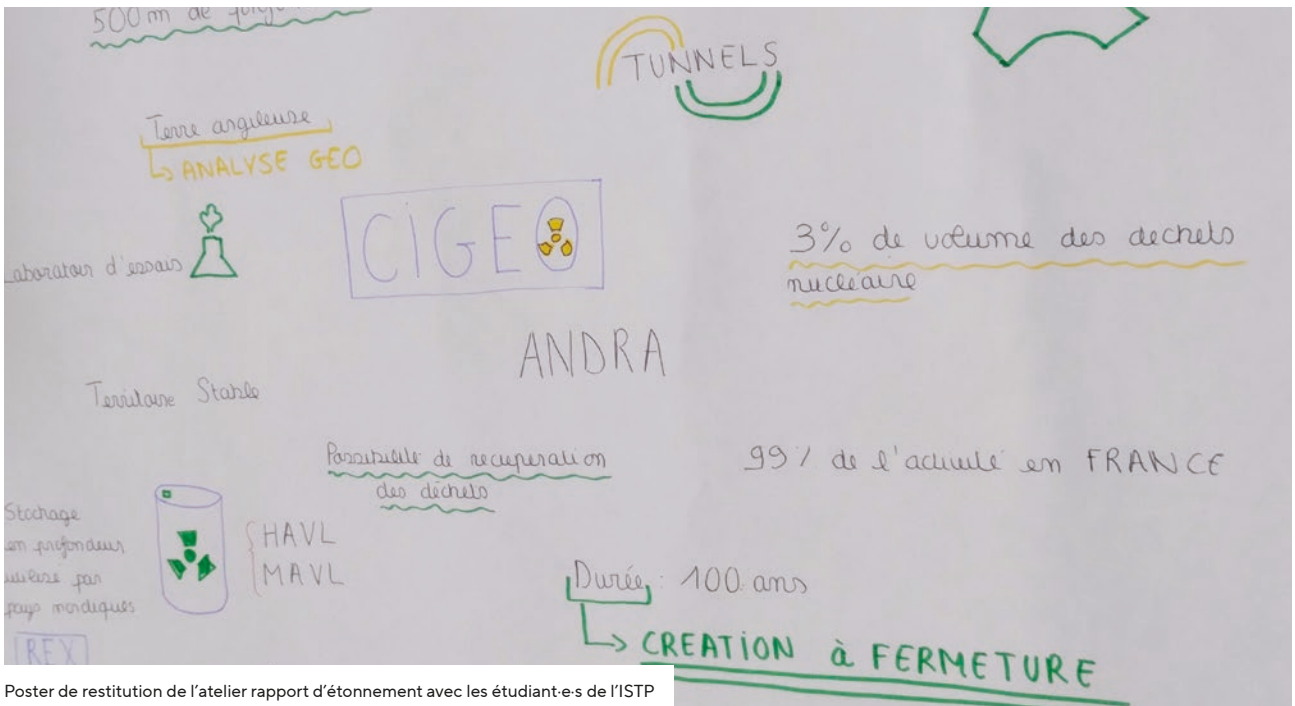 500 m de
TUNNELS
Terre argileuse
↳ ANALYSE GEO
CIGEO
3% de volume des dechets
nucleaire
Laboratoir d'essais
ANDRA
Territoire Stable
Possibilité de recuperation
des déchets
99% de l'activité en FRANCE
Stockage
en profondeur
utilisé par
pays nordiques
HAVL
MAVL
Durée : 100 ans
↳ CREATION à FERMETURE
REX
Poster de restitution de l'atelier rapport d'étonnement avec les étudiant·e·s de l'ISTP